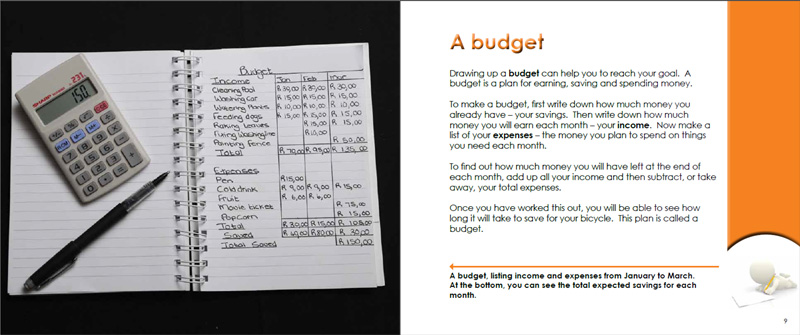 231
SHARP
150.
Budget
Income Jan Feb Mar
Cleaning Pool R 30,00 R 30,00 R 30,00
Washing Car R 15,00 R 15,00 R 15,00
Watering Plants R 10,00 R 10,00 R 10,00
Feeding dogs R 15,00 R 15,00
Raking Leaves R 15,00 R 15,00
Fixing Washingline R 10,00
Painting Fence R 50,00
Total R 70,00 R 95,00 R 135,00
Expenses
Pen R 15,00
Cold drink R 9,00 R 9,00 R 15,00
Fruit R 6,00 R 6,00
ticket R 75,00
Popcorn R 15,00
Total R 30,00 R 15,00 R 105,00
Saved R 40,00 R 80,00 R 30,00
Total Saved R 150,00
A budget
Drawing up a budget can help you to reach your goal. A
budget is a plan for earning, saving and spending money.
To make a budget, first write down how much money you
already have – your savings. Then write down how much
money you will earn each month – your income. Now make a
list of your expenses – the money you plan to spend on things
you need each month.
To find out how much money you will have left at the end of
each month, add up all your income and then subtract, or take
away, your total expenses.
Once you have worked this out, you will be able to see how
long it will take to save for your bicycle. This plan is called a
budget.
A budget, listing income and expenses from January to March.
At the bottom, you can see the total expected savings for each
month.
9